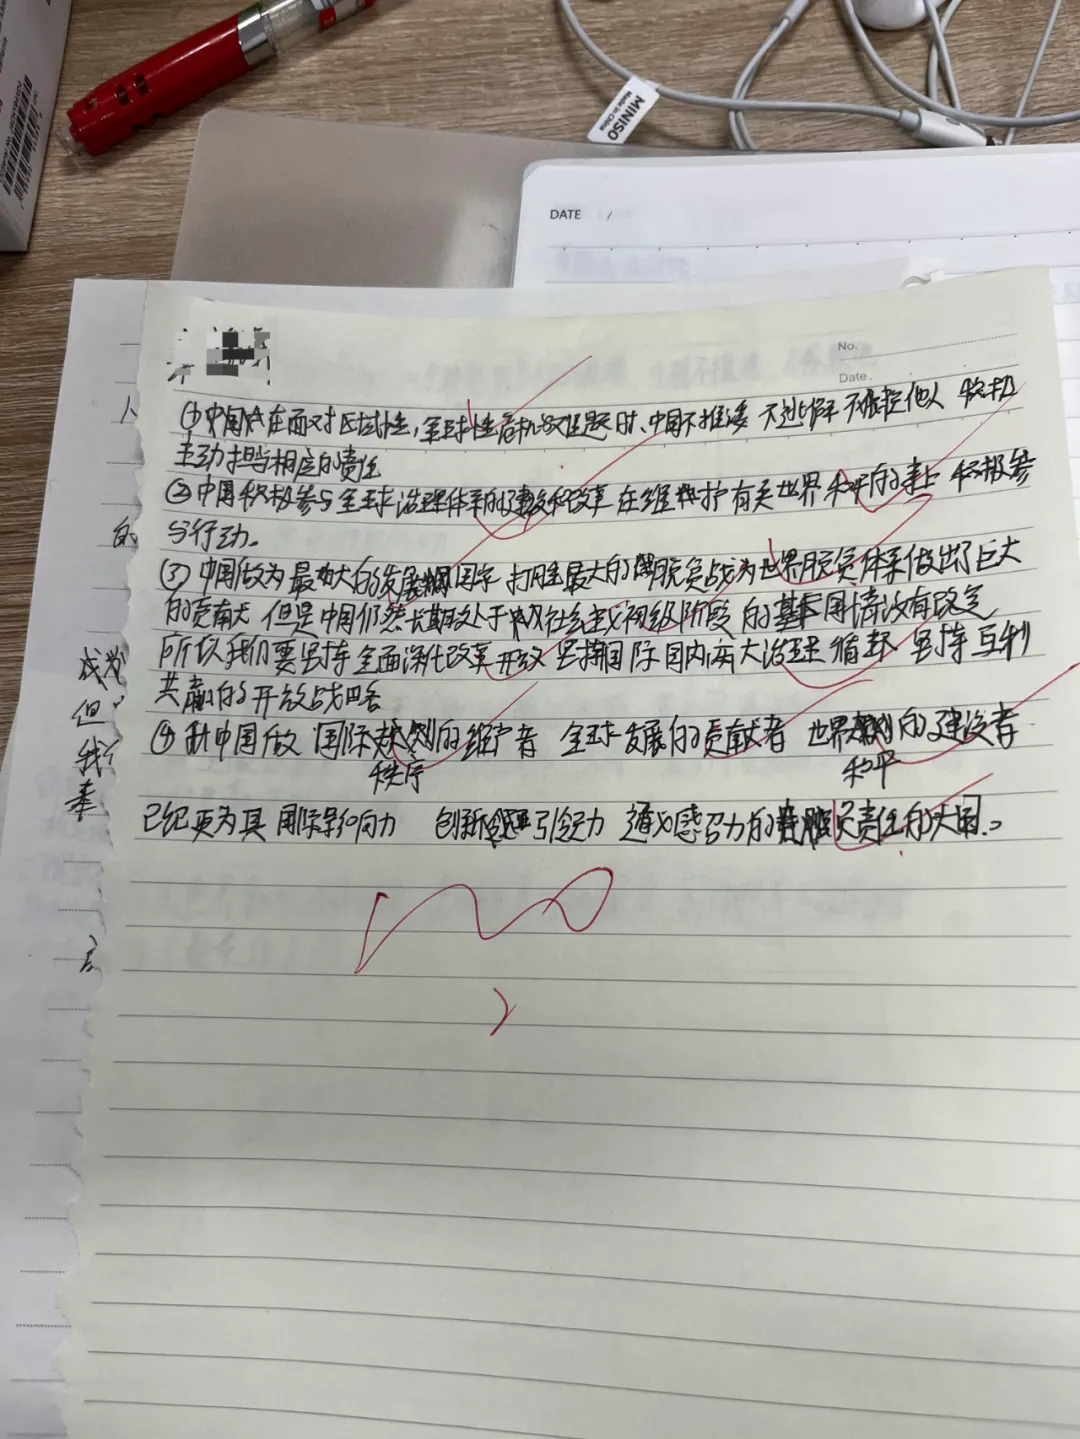 MINISO
Made in China
DATE /
No.
Date.
①中国在面对区域性,全球性危机及难题时、中国不推诿 不逃避 不依赖他人 积极
主动担当相应的责任
②中国积极参与全球治理体系的建设和改革 在维护有关世界和平的事上 积极参
与行动。
③ 中国做为最大的发展国家 打赢最大的脱贫战为世界脱贫体系做出了巨大
的贡献 但是中国仍然长期处于社会主义初级阶段的基本国情没有改变
所以我们要坚持全面深化改革开放 坚持国际国内两大循环 坚持互利
共赢的开放战略
④ 中国做 国际秩序的维护者 全球发展的贡献者 世界和平的建设者
已经更为具国际影响力 创新引领力 道义感召力的负责任的大国。
成
但
我
奉